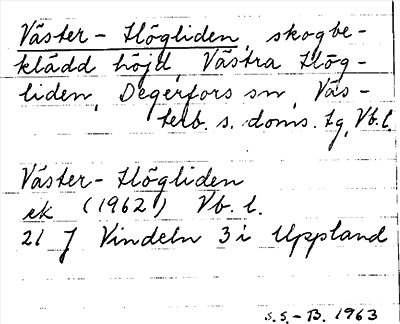 Väster-Högliden, skogbe-
klädd höjd, Västra Hög-
liden, Degerfors sn, Väs-
terb. s. doms. tg, Vb. l.
Väster-Högliden
ek (1962) Vb. l.
21 J Vindeln 3 i Uppland
S.S.-B. 1963